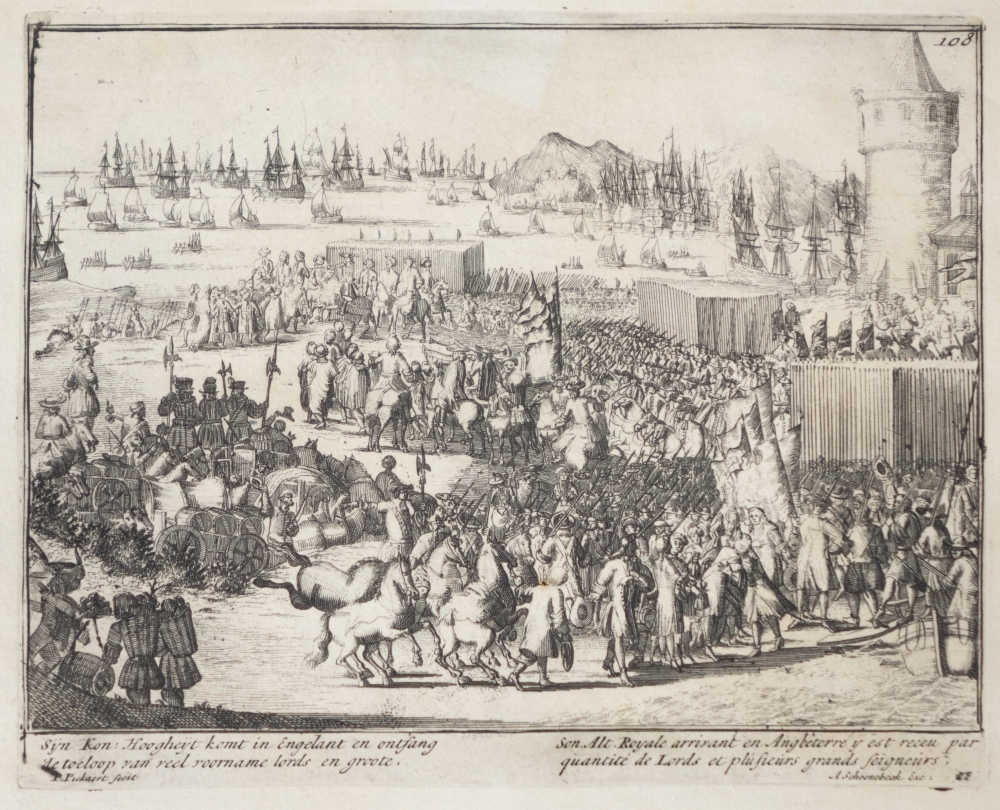 108
Sÿn Kon: Hoogheÿt komt in Engelant en ontfang
de toeloop van veel voorname lords en groote.
P. Pickaert fecit
Son Alt. Royale arrivant en Angleterre y est receu par
quantité de Lords et plusieurs grands seigneurs.
A Schoonebeek Exc: